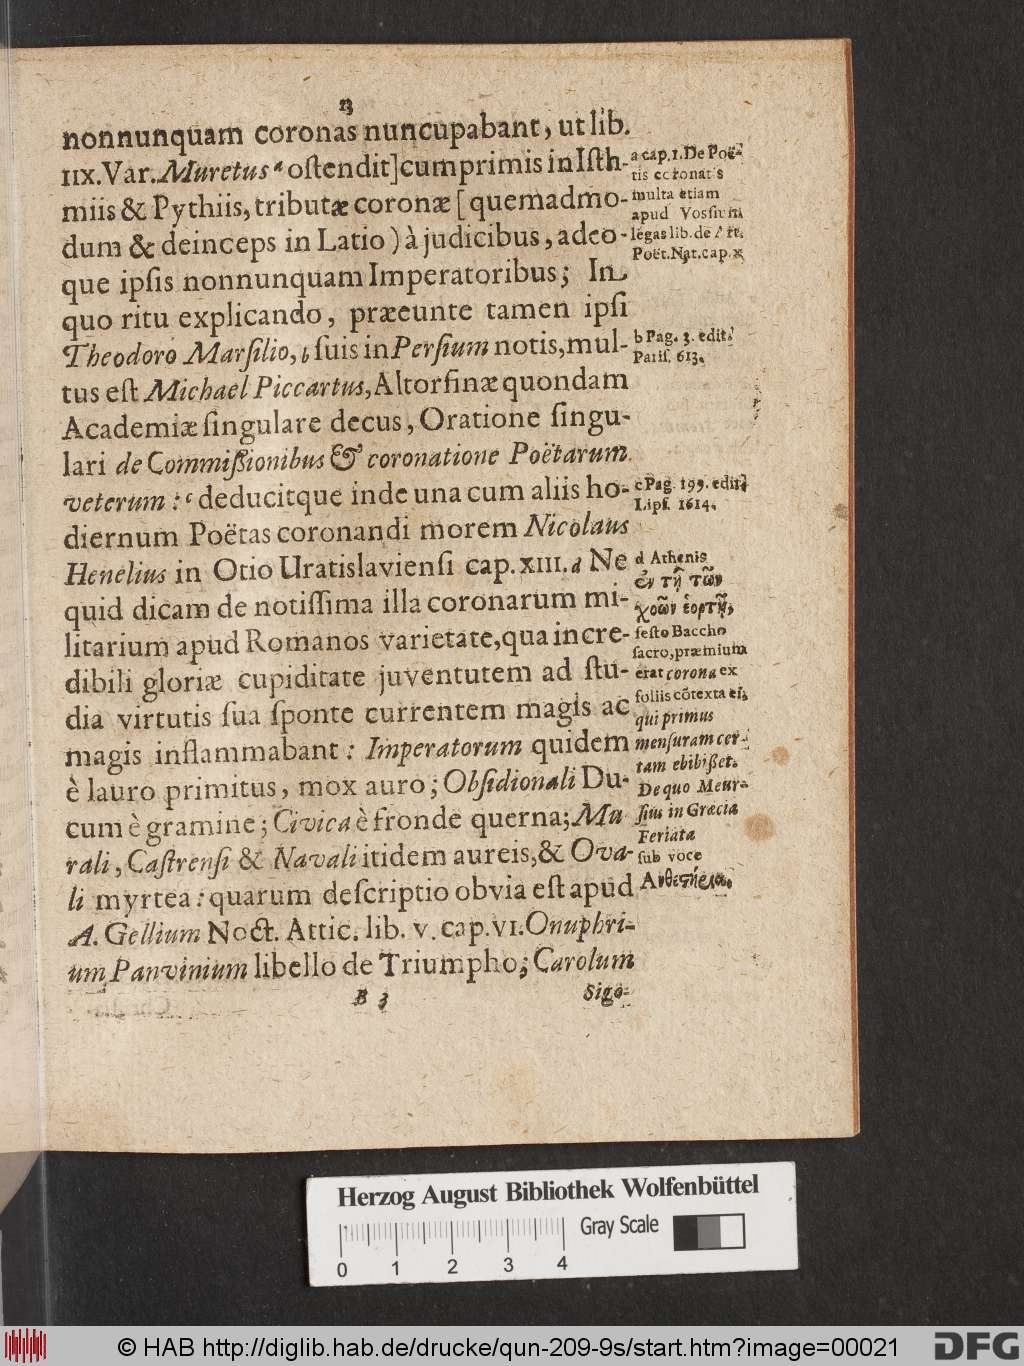 13
nonnunquam coronas nuncupabant, ut lib.
IIX. Var. Muretus a oſtendit] cumprimis in Iſth-
miis & Pythiis, tributæ coronæ [quemadmo-
dum & deinceps in Latio) à judicibus, adeo-
que ipſis nonnunquam Imperatoribus; In
quo ritu explicando, præeunte tamen ipſi
Theodoro Marſilio, b ſuis in Perſium notis, mul-
tus eſt Michael Piccartus, Altorfinæ quondam
Academiæ ſingulare decus, Oratione ſingu-
lari de Commißionibus & coronatione Poëtarum
veterum: c deducitque inde una cum aliis ho-
diernum Poëtas coronandi morem Nicolaus
Henelius in Otio Uratislavienſi cap. XIII. d Ne
quid dicam de notiſſima illa coronarum mi-
litarium apud Romanos varietate, qua incre-
dibili gloriæ cupiditate juventutem ad ſtu-
dia virtutis ſua ſponte currentem magis ac
magis inflammabant: Imperatorum quidem
è lauro primitus, mox auro; Obſidionali Du-
cum è gramine; Civica è fronde querna; Mu-
rali, Caſtrenſi & Navali itidem aureis, & Ova-
li myrtea: quarum deſcriptio obvia eſt apud
A. Gellium Noct. Attic. lib. V. cap. VI. Onuphri-
um Panvinium libello de Triumpho; Carolum
B 3
Sigo-
a cap. 1. De Poë-
tis coronatis
multa etiam
apud Vosſium
legas lib. de Art.
Poët. Nat. cap. x
b Pag. 3. edit.
Pariſ. 613.
c Pag. 199. edit.
Lipſ. 1614.
d Athenis
ἐν τῇ τῶν
χοῶν ἑορτῇ,
feſto Baccho
ſacro, præmium
erat corona ex
foliis cōtexta ei,
qui primus
menſuram cer-
tam ebibißet.
De quo Meur-
ſius in Græcia
Feriata
ſub voce
Ἀνθεστήρια.
Herzog August Bibliothek Wolfenbüttel
Gray Scale
0 1 2 3 4
© HAB http://diglib.hab.de/drucke/qun-209-9s/start.htm?image=00021
DFG